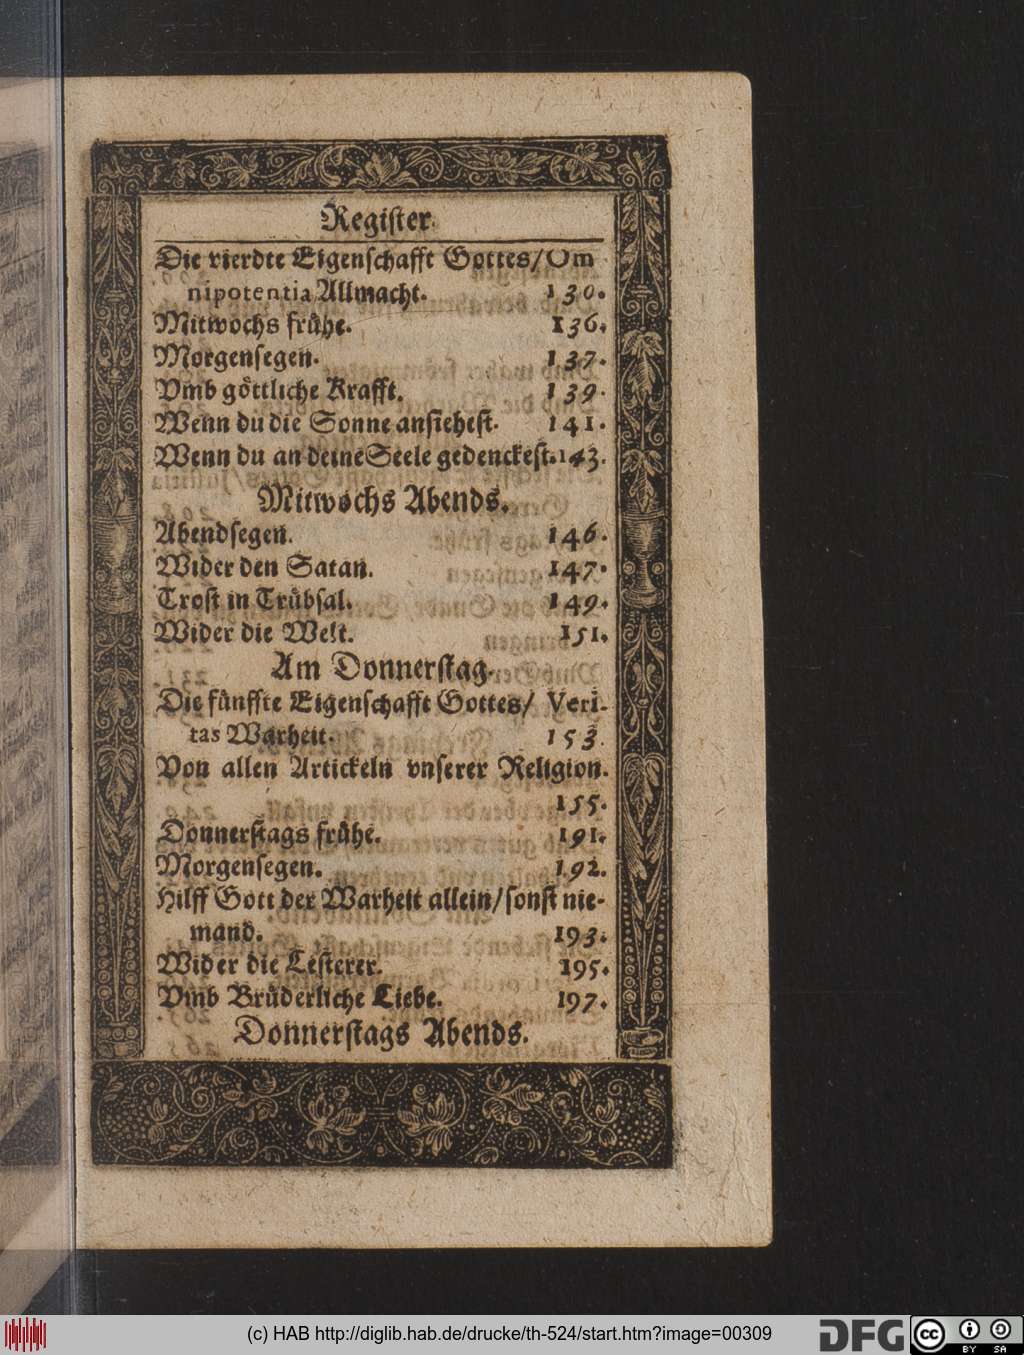 Regiſter.
Die vierdte Eigenſchafft Gottes/ Om
nipotentia Allmacht. 130.
Mitwochs fruͤhe. 136.
Morgenſegen. 137.
Vmb goͤttliche Krafft. 139.
Wenn du die Sonne anſieheſt. 141.
Wenn du an deine Seele gedenckeſt. 143.
Mitwochs Abends.
Abendſegen. 146.
Wider den Satan. 147.
Troſt in Truͤbſal. 149.
Wider die Welt. 151.
Am Donnerſtag.
Die fuͤnffte Eigenſchafft Gottes/ Veri-
tas Warheit. 153.
Von allen Artickeln vnſerer Religion.
155.
Donnerſtags fruͤhe. 191.
Morgenſegen. 192.
Hilff Gott der Warheit allein/ ſonſt nie-
mand. 193.
Wider die Leſterer. 195.
Vmb Bruͤderliche Liebe. 197.
Donnerſtags Abends.
(c) HAB http://diglib.hab.de/drucke/th-524/start.htm?image=00309
DFG
cc
BY SA